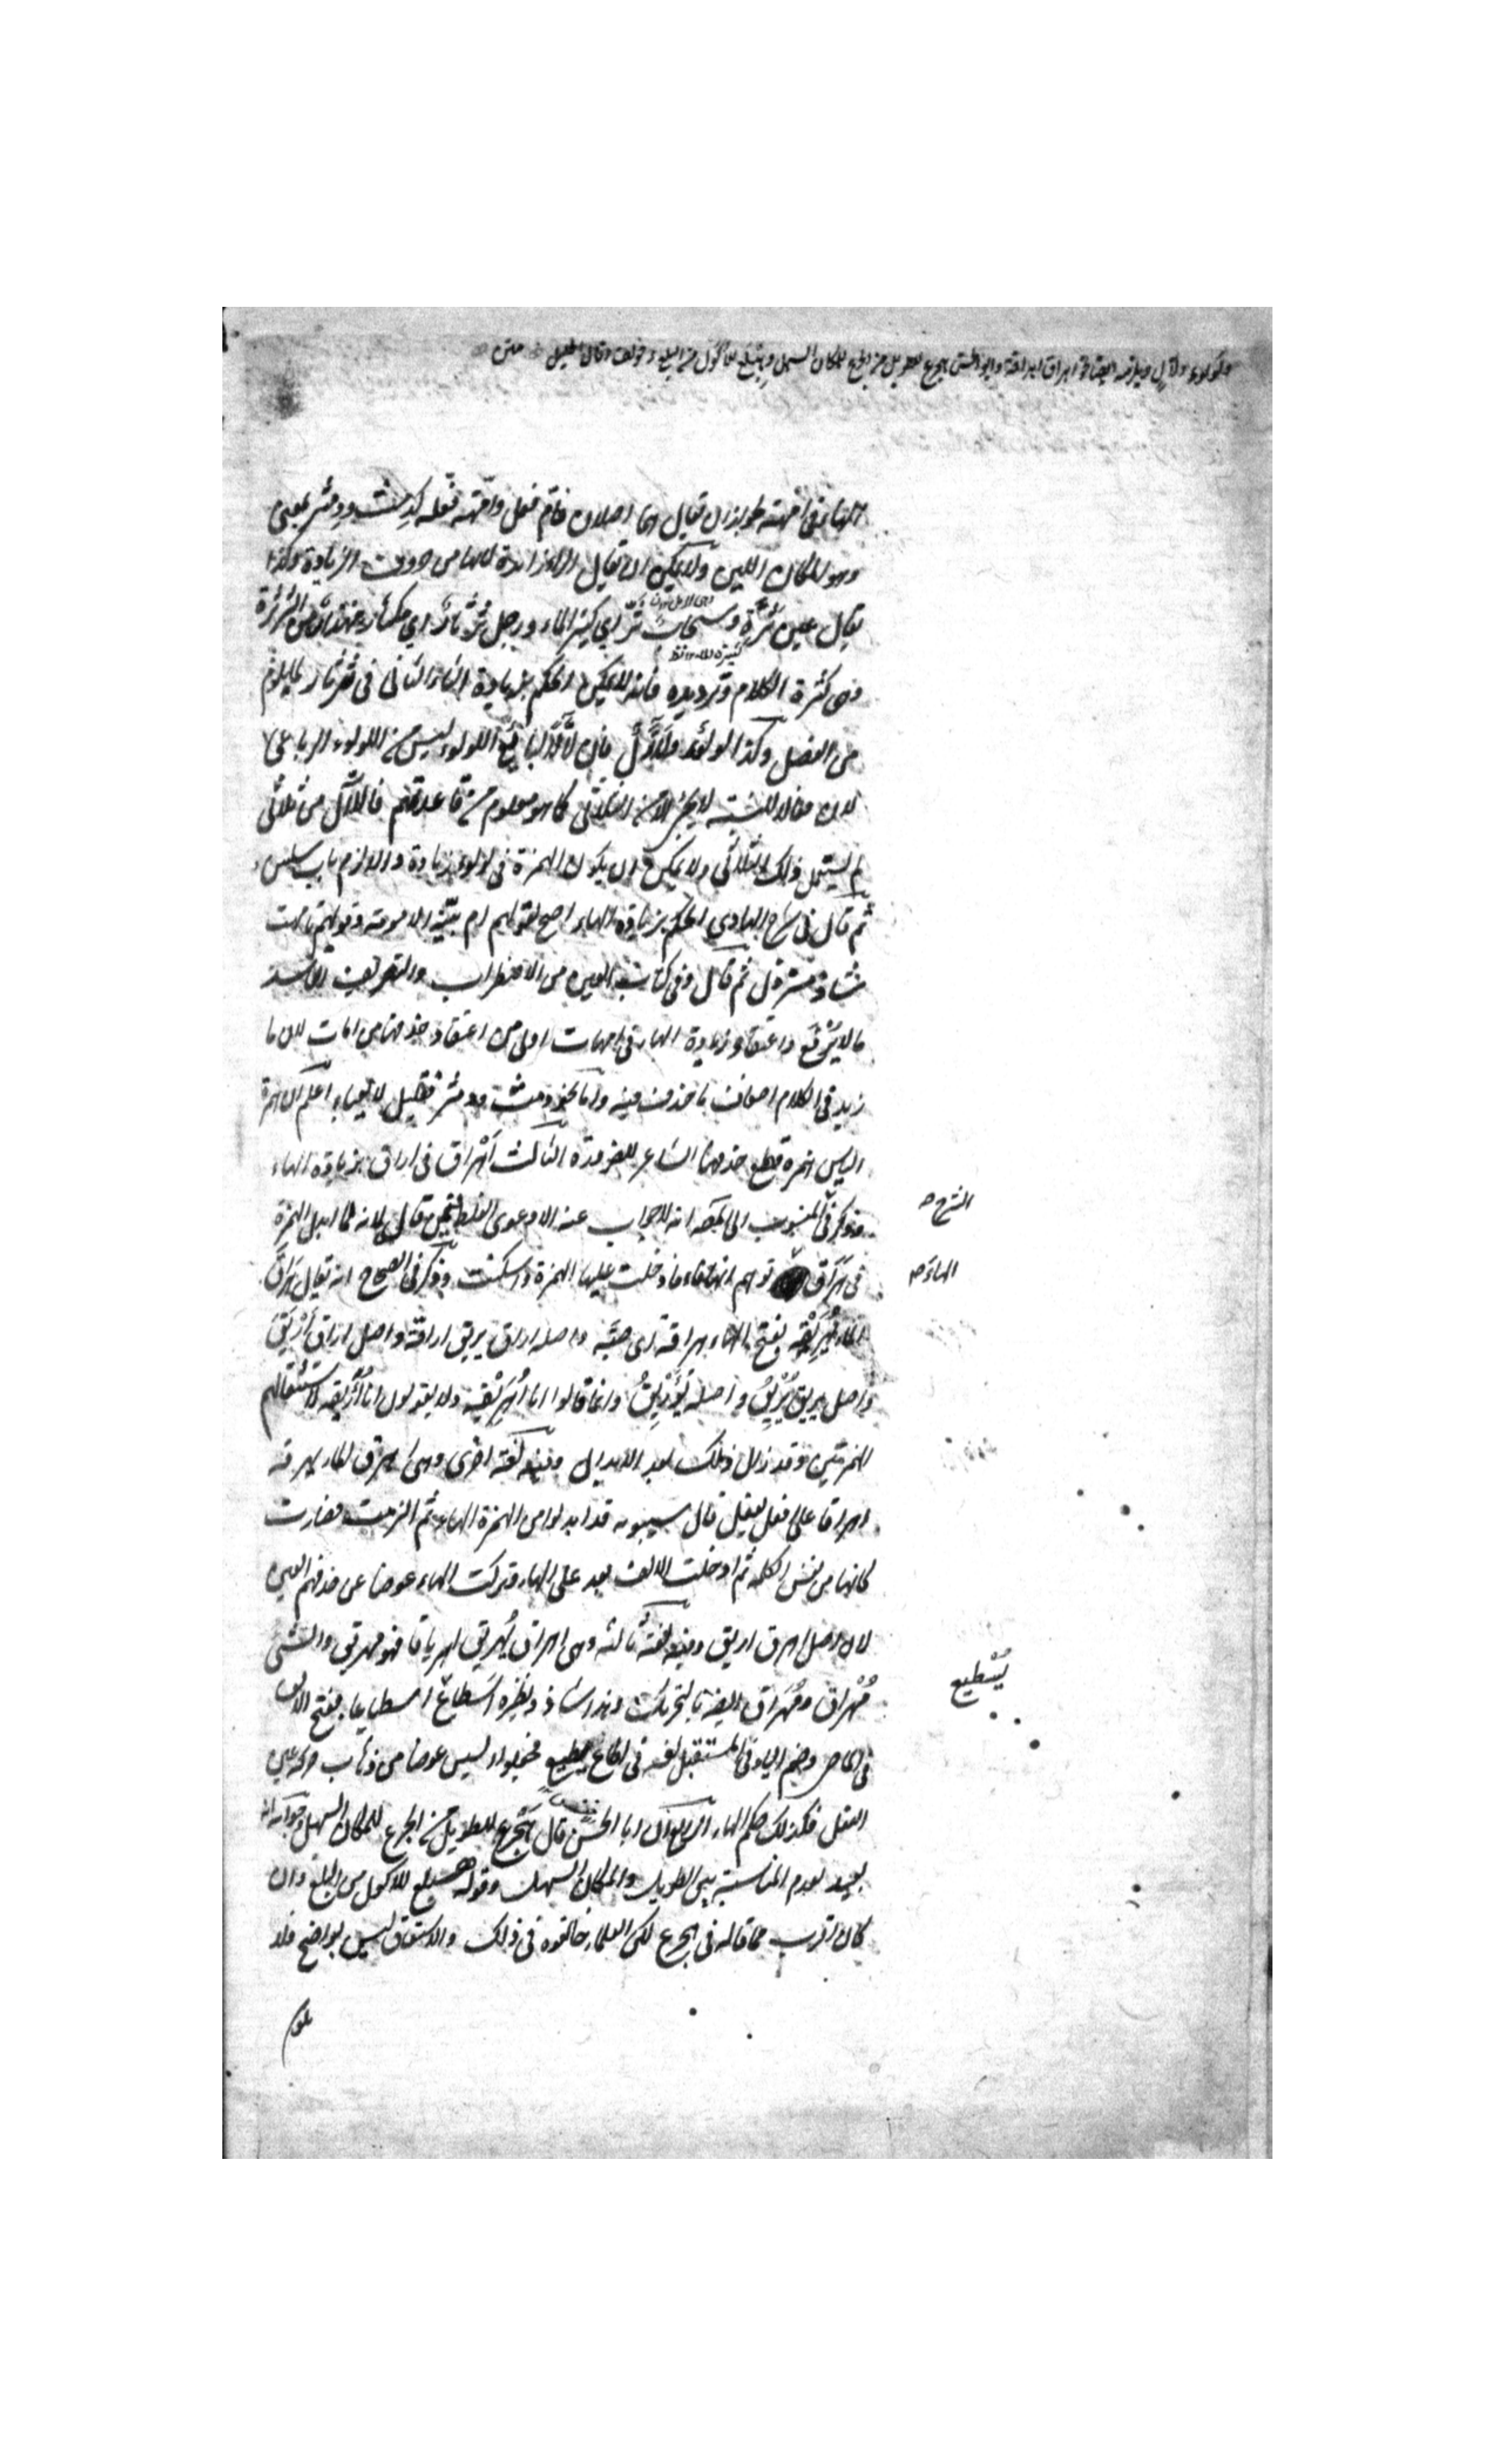 ولؤلؤ ولآل ويلزمه ايضا نحو اهراق اهراقة وابو الحسن هجرع للطويل من الجرع للمكان السهل وهبلع للاكول من البلع وخولف وقال الخليل متن
الهاء في امهة يجوز ان يقال انها اصلان فام فعل وامهة فعلة كدمث ودمثر بمعنى
وهو المكان اللين ولا يمكن ان يقال الراء زائدة لانها من حروف الزيادة وكذا
يقال عين ثرة وسحاب ثر اي كثير الماء ورجل ثرثار اي مكثار مهذار من الثرثرة
وهي كثرة الكلام وترديده فانه لا يمكن الحكم بزيادة الثاء الثاني في ثرثار لما يلزم
من الفصل وكذا لؤلؤ ولآل فان لآل لبايع اللؤلؤ ليس من اللؤلؤ الرباعي
لان فعالا للنسبة لا يجئ الا من الثلاثي كما هو معلوم من قاعدتهم فاللآل من ثلاثي
لم يستعمل ذلك الثلاثي ولا يمكن ان يكون الهمزة في لؤلؤ زيادة والا لزم باب سلس
ثم قال في شرح الهادي الحكم بزيادة الهاء اصح لقولهم ام بينة الامومة وقولهم تامهت
شاذ مسترذل ثم قال وفي كتاب العين من الاضطراب والتصريف الفاسد
ما لا يدفع واعتقاد زيادة الهاء في امهات اولى من اعتقاد حذفها من امات لان ما
زيد في الكلام اضعاف ما حذف منه واما نحو دمث ودمثر فقليل لا يعبأ به اعلم ان همزة
الياس همزة قطع حذفها الشاعر للضرورة الثالث اهراق في اراق بزيادة الهاء
وذكر في المنسوب الى المص انه لا جواب عنه الا دعوى الغلط ممن قال لانه لما ابدل الهمزة
الشرح صح
في هراق توهم انها فاء فادخلت عليها الهمزة واسكنت وذكر في الصحاح انه يقال هراق
الهاء صح
الماء يهريقه بفتح الهاء هراقة اي صبه واصله اراق يريق اراقة واصل اراق اريق
واصل يريق يريق واصله يؤريق وانما قالوا انا اهريقه ولا يقولون انا أأريقه لاستثقالهم
الهمزتين وقد زال ذلك بعد الابدال وفيه لغة اخرى وهي اهرق الماء يهرقه
اهراقا على افعل يفعل قال سيبويه قد ابدلوا من الهمزة الهاء ثم الزمت فصارت
كانها من نفس الكلمة ثم ادخلت الالف بعد على الهاء وتركت الهاء عوضا عن حذفهم العين
لان اصل اهرق اريق وفيه لغة ثالثة وهي اهراق يهريق اهرياقا فهو مهريق والشئ
مهراق ومهراق ايضا بالتحريك وهذا شاذ ونظيره اسطاع اسطياعا بفتح الالف
يسطيع
في الماضي وضم الياء في المستقبل لغة في اطاع يطيع فجعلوا السين عوضا من ذهاب حركة عين
الفعل فكذلك حكم الهاء الرابع ان ابا الحسن قال هجرع للطويل من الجرع للمكان السهل وجوابه انه
بعيد لعدم المناسبة بين الطويل والمكان السهل وقوله هبلع للاكول من البلع وان
كان اقرب مما قاله في هجرع لكن العلماء خالفوه في ذلك والاشتقاق ليس بواضح فلا